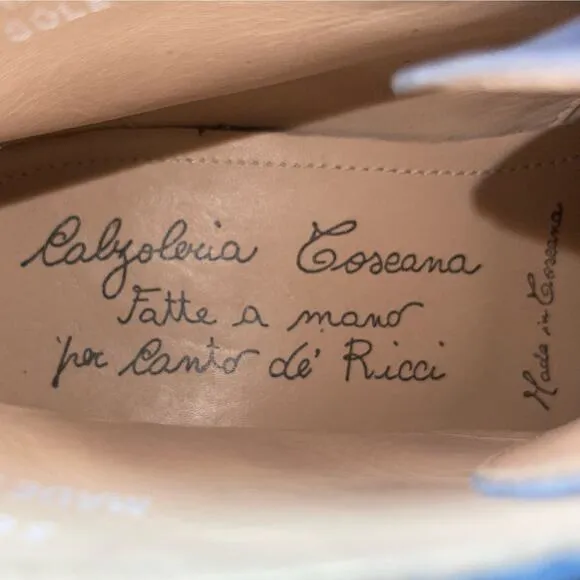 Calzoleria Toscana
Fatte a mano
per Canto de' Ricci
Made in Toscana